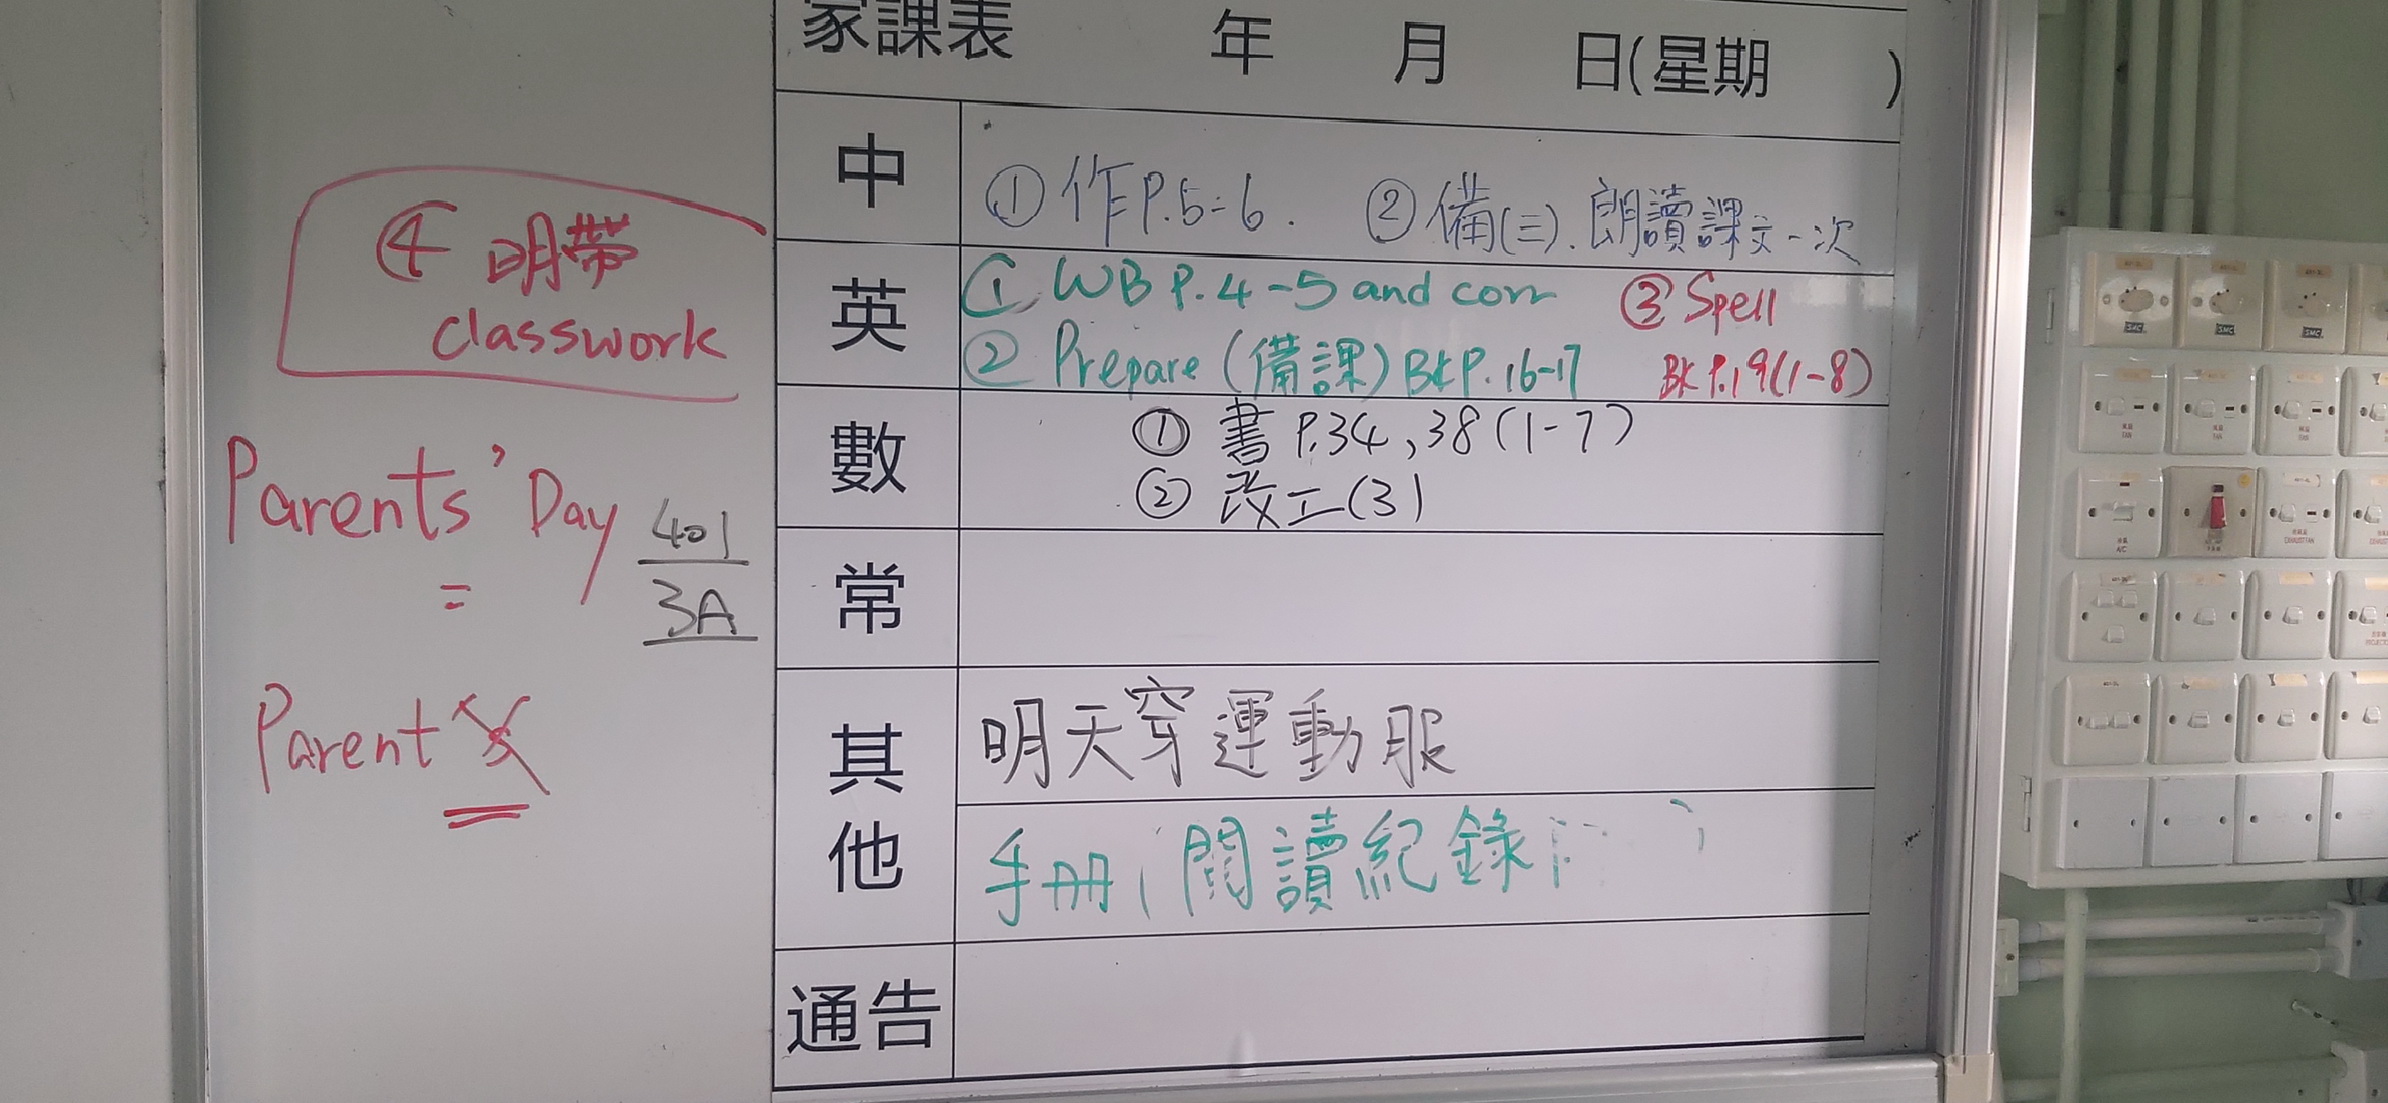 家課表 年 月 日(星期 )
中 ①作P.5-6. ②備(三).朗讀課文一次
英 ① WB P.4-5 and corr ③ Spell
② Prepare (備課) BK P.16-17 BK P.19(1-8)
數 ① 書 P.34,38(1-7)
② 改工(3)
常
其他 明天穿運動服
手冊,閱讀紀錄
通告
④ 明帶
classwork
Parents' Day
401
3A
Parent
SMC SMC SMC
FAN FAN FAN
A/C EXHAUST FAN